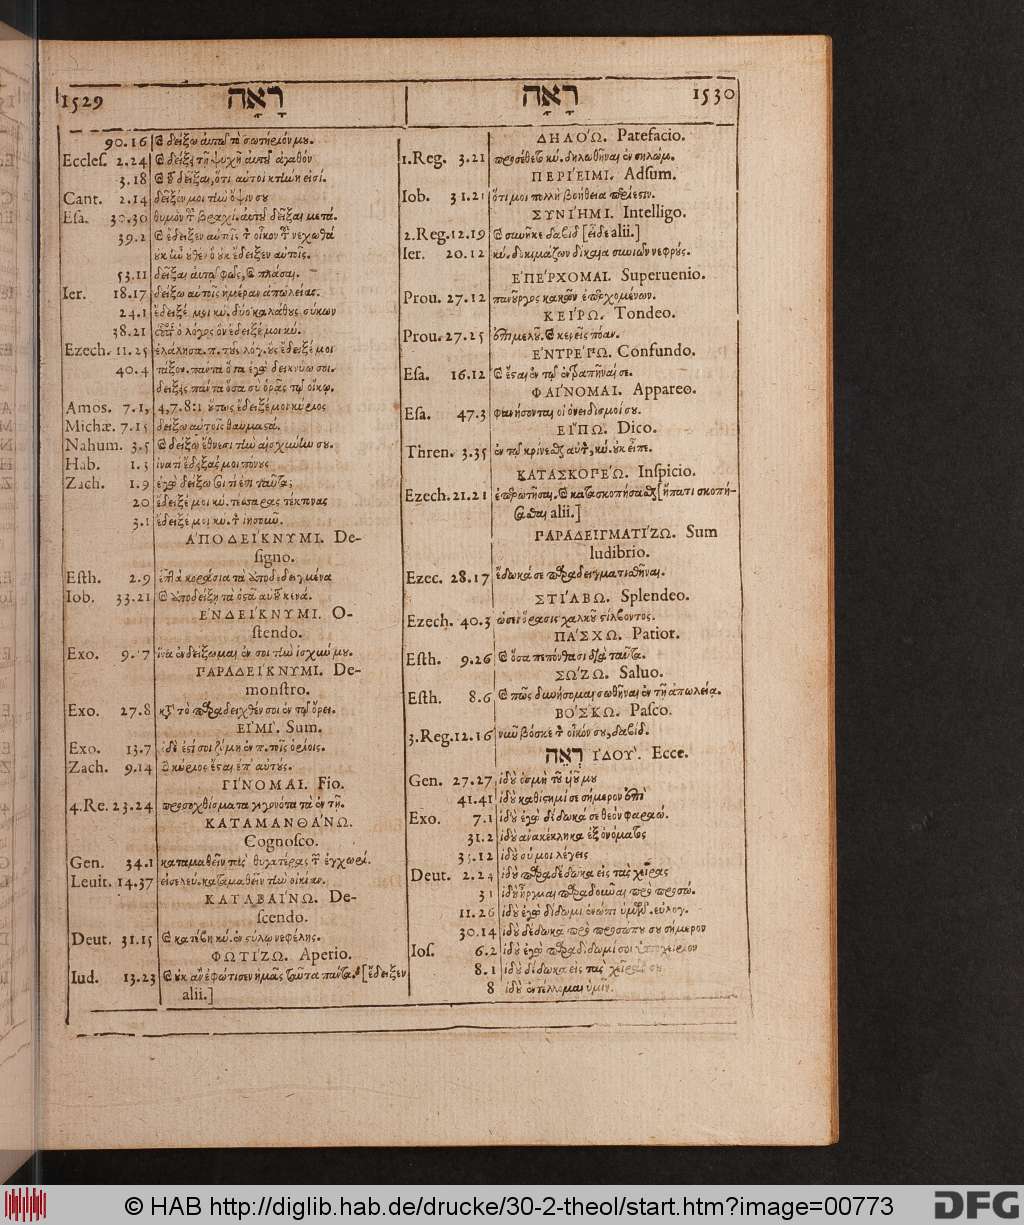 1529 רָאָה
90.16 καὶ δείξω αὐτῷ τὸ σωτήριόν μου.
Eccles. 2.24 καὶ δείξει τῇ ψυχῇ αὐτοῦ ἀγαθόν
3.18 καὶ τοῦ δεῖξαι, ὅτι αὐτοὶ κτήνη εἰσί.
Cant. 2.14 δεῖξόν μοι τὴν ὄψιν σου
Esa. 30.30 θυμὸν τοῦ βραχί. αὐτοῦ δεῖξαι μετά.
39.2 καὶ ἔδειξεν αὐτοῖς τὸν οἶκον τοῦ νεχωθά
οὐκ ἦν οὐθὲν ὃ οὐκ ἔδειξεν αὐτοῖς.
53.11 δεῖξαι αὐτῷ φῶς, καὶ πλάσαι.
Ier. 18.17 δείξω αὐτοῖς ἡμέραν ἀπωλείας.
24.1 ἔδειξέ μοι κύ. δύο καλάθους σύκων
38.21 οὗτος ὁ λόγος ὃν ἔδειξέ μοι κύ.
Ezech. 11.25 ἐλάλησα. π. τοὺς λόγ. οὓς ἔδειξέ μοι
40.4 τάξον. πάντα ὅσα ἐγὼ δεικνύω σοι.
δείξεις πάντα ὅσα σὺ ὁρᾷς τῷ οἴκῳ.
Amos. 7.1, 4, 7. 8:1 οὕτως ἔδειξέ μοι κύριος
Michæ. 7.15 δείξω αὐτοῖς θαυμαστά.
Nahum. 3.5 καὶ δείξω ἔθνεσι τὴν αἰσχύνην σου.
Hab. 1.3 ἱνατί ἔδειξάς μοι πόνους
Zach. 1.9 ἐγὼ δείξω σοι τί ἐστι ταῦτα;
20 ἔδειξέ μοι κύ. τέσσαρας τέκτονας
3.1 ἔδειξέ μοι κύ. τὸν ἰησοῦν.
ἈΠΟΔΕΊΚΝΥΜΙ. De-
signo.
Esth. 2.9 ἑπτὰ κοράσια τὰ ὑποδεδειγμένα
Iob. 33.21 καὶ ὑποδείξῃ τὰ ὀστᾶ αὐτοῦ κενά.
ἘΝΔΕΊΚΝΥΜΙ. O-
stendo.
Exo. 9.17 ἵνα ἐνδείξωμαι ἐν σοὶ τὴν ἰσχύν μου.
ΠΑΡΑΔΕΊΚΝΥΜΙ. De-
monstro.
Exo. 27.8 κατὰ τὸ παραδειχθέν σοι ἐν τῷ ὄρει.
ΕἸΜΊ. Sum.
Exo. 13.7 οὐδὲ ἔσται σοι ζύμη ἐν π. τοῖς ὁρίοις.
Zach. 9.14 καὶ κύριος ἔσται ἐπ' αὐτούς.
ΓΊΝΟΜΑΙ. Fio.
4.Re. 23.24 προσοχθίσματα γεγονότα τὰ ἐν τῇ.
ΚΑΤΑΜΑΝΘΆΝΩ.
Cognosco.
Gen. 34.1 καταμαθεῖν τὰς θυγατέρας τῶν ἐγχωρί.
Leuit. 14.37 εἰσελεύ. καταμαθεῖν τὴν οἰκίαν.
ΚΑΤΑΒΑΊΝΩ. De-
scendo.
Deut. 31.15 καὶ κατέβη κύ. ἐν στύλῳ νεφέλης.
ΦΩΤΊΖΩ. Aperio.
Iud. 13.23 καὶ οὐκ ἂν ἐφώτισεν ἡμᾶς ταῦτα πάντα. [ἔδειξεν
alii.]
רָאָה 1530
ΔΗΛΌΩ. Patefacio.
1.Reg. 3.21 προσέθετο κύ. δηλωθῆναι ἐν σηλώμ.
ΠΕΡΊΕΙΜΙ. Adsum.
Iob. 31.21 ὅτι μοι πολλὴ βοήθεια περίεστιν.
ΣΥΝΊΗΜΙ. Intelligo.
2.Reg. 12.19 καὶ συνῆκε δαβὶδ [εἶδε alii.]
Ier. 20.12 κύ. δοκιμάζων δίκαια συνιῶν νεφρούς.
ἘΠΈΡΧΟΜΑΙ. Superuenio.
Prou. 27.12 πανοῦργος κακῶν ἐπερχομένων.
ΚΕΊΡΩ. Tondeo.
Prou. 27.25 ἐπιμελοῦ. καὶ κερεῖς πόαν.
ἘΝΤΡΈΠΩ. Confundo.
Esa. 16.12 καὶ ἔσται ἐν τῷ ἐντραπῆναί σε.
ΦΑΊΝΟΜΑΙ. Appareo.
Esa. 47.3 φανήσονται οἱ ὀνειδισμοί σου.
ΕἼΠΩ. Dico.
Thren. 3.35 ἐν τῷ κρίνεσθαι αὐτόν, κύ. οὐκ εἶπε.
ΚΑΤΑΣΚΟΠΈΩ. Inspicio.
Ezech. 21.21 ἐπερωτῆσαι. καὶ κατασκοπήσασθαι [ἥπατι σκοπή-
σασθαι alii.]
ΠΑΡΑΔΕΙΓΜΑΤΊΖΩ. Sum
ludibrio.
Ezec. 28.17 ἔδωκά σε παραδειγματισθῆναι.
ΣΤΊΛΒΩ. Splendeo.
Ezech. 40.3 ὡσεὶ ὅρασις χαλκοῦ στίλβοντος.
ΠΆΣΧΩ. Patior.
Esth. 9.26 καὶ ὅσα πεπόνθασι διὰ ταῦτα.
ΣΏΖΩ. Saluo.
Esth. 8.6 καὶ πῶς δυνήσομαι σωθῆναι ἐν τῇ ἀπωλείᾳ.
ΒΌΣΚΩ. Pasco.
3.Reg. 12.16 νῦν βόσκε τὸν οἶκόν σου, δαβίδ.
רְאֵה ἸΔΟΎ. Ecce.
Gen. 27.27 ἰδοὺ ὀσμὴ τοῦ υἱοῦ μου
41.41 ἰδοὺ καθίστημί σε σήμερον ἐπὶ
Exo. 7.1 ἰδοὺ ἐγὼ δίδωκά σε θεὸν φαραώ.
31.2 ἰδοὺ ἀνακέκληκα ἐξ ὀνόματος
33.12 ἰδοὺ σύ μοι λέγεις
Deut. 2.24 ἰδοὺ παραδέδωκα εἰς τὰς χεῖρας
31 ἰδοὺ ἦργμαι παραδοῦναι πρὸ προσώ.
11.26 ἰδοὺ ἐγὼ δίδωμι ἐνώπι ὑμῶν. εὐλογ.
30.14 ἰδοὺ δέδωκα πρὸ προσώπου σου σήμερον
Ios. 6.2 ἰδοὺ ἐγὼ παραδίδωμί σοι ὑποχείριον
8.1 ἰδοὺ δίδωκα εἰς τὰς χεῖράς σου
8 ἰδοὺ ἐντέλλομαι ὑμῖν.
© HAB http://diglib.hab.de/drucke/30-2-theol/start.htm?image=00773
DFG